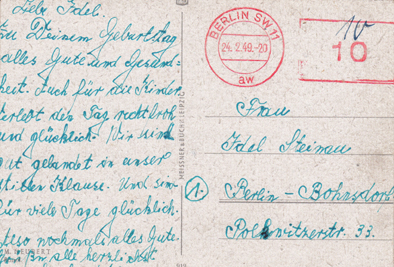 Liebe Idel.
Zu Deinem Geburtstag
alles Gute und Gesund-
heit. Auch für die Kinder
verlebt des Tag recht froh
und glücklich. Wir sind
gut gelandet in unser
alten Klause. Und sind
für viele Tage glücklich.
Also nochmals alles Gute
alle herzlichst
MEISSNER & BUCH LEIPZIG
BERLIN SW 11
24.2.49.-20
aw
10
10
Frau
Idel Steinau
1.
Berlin-Bohnsdorf
Polkwitzerstr. 33.